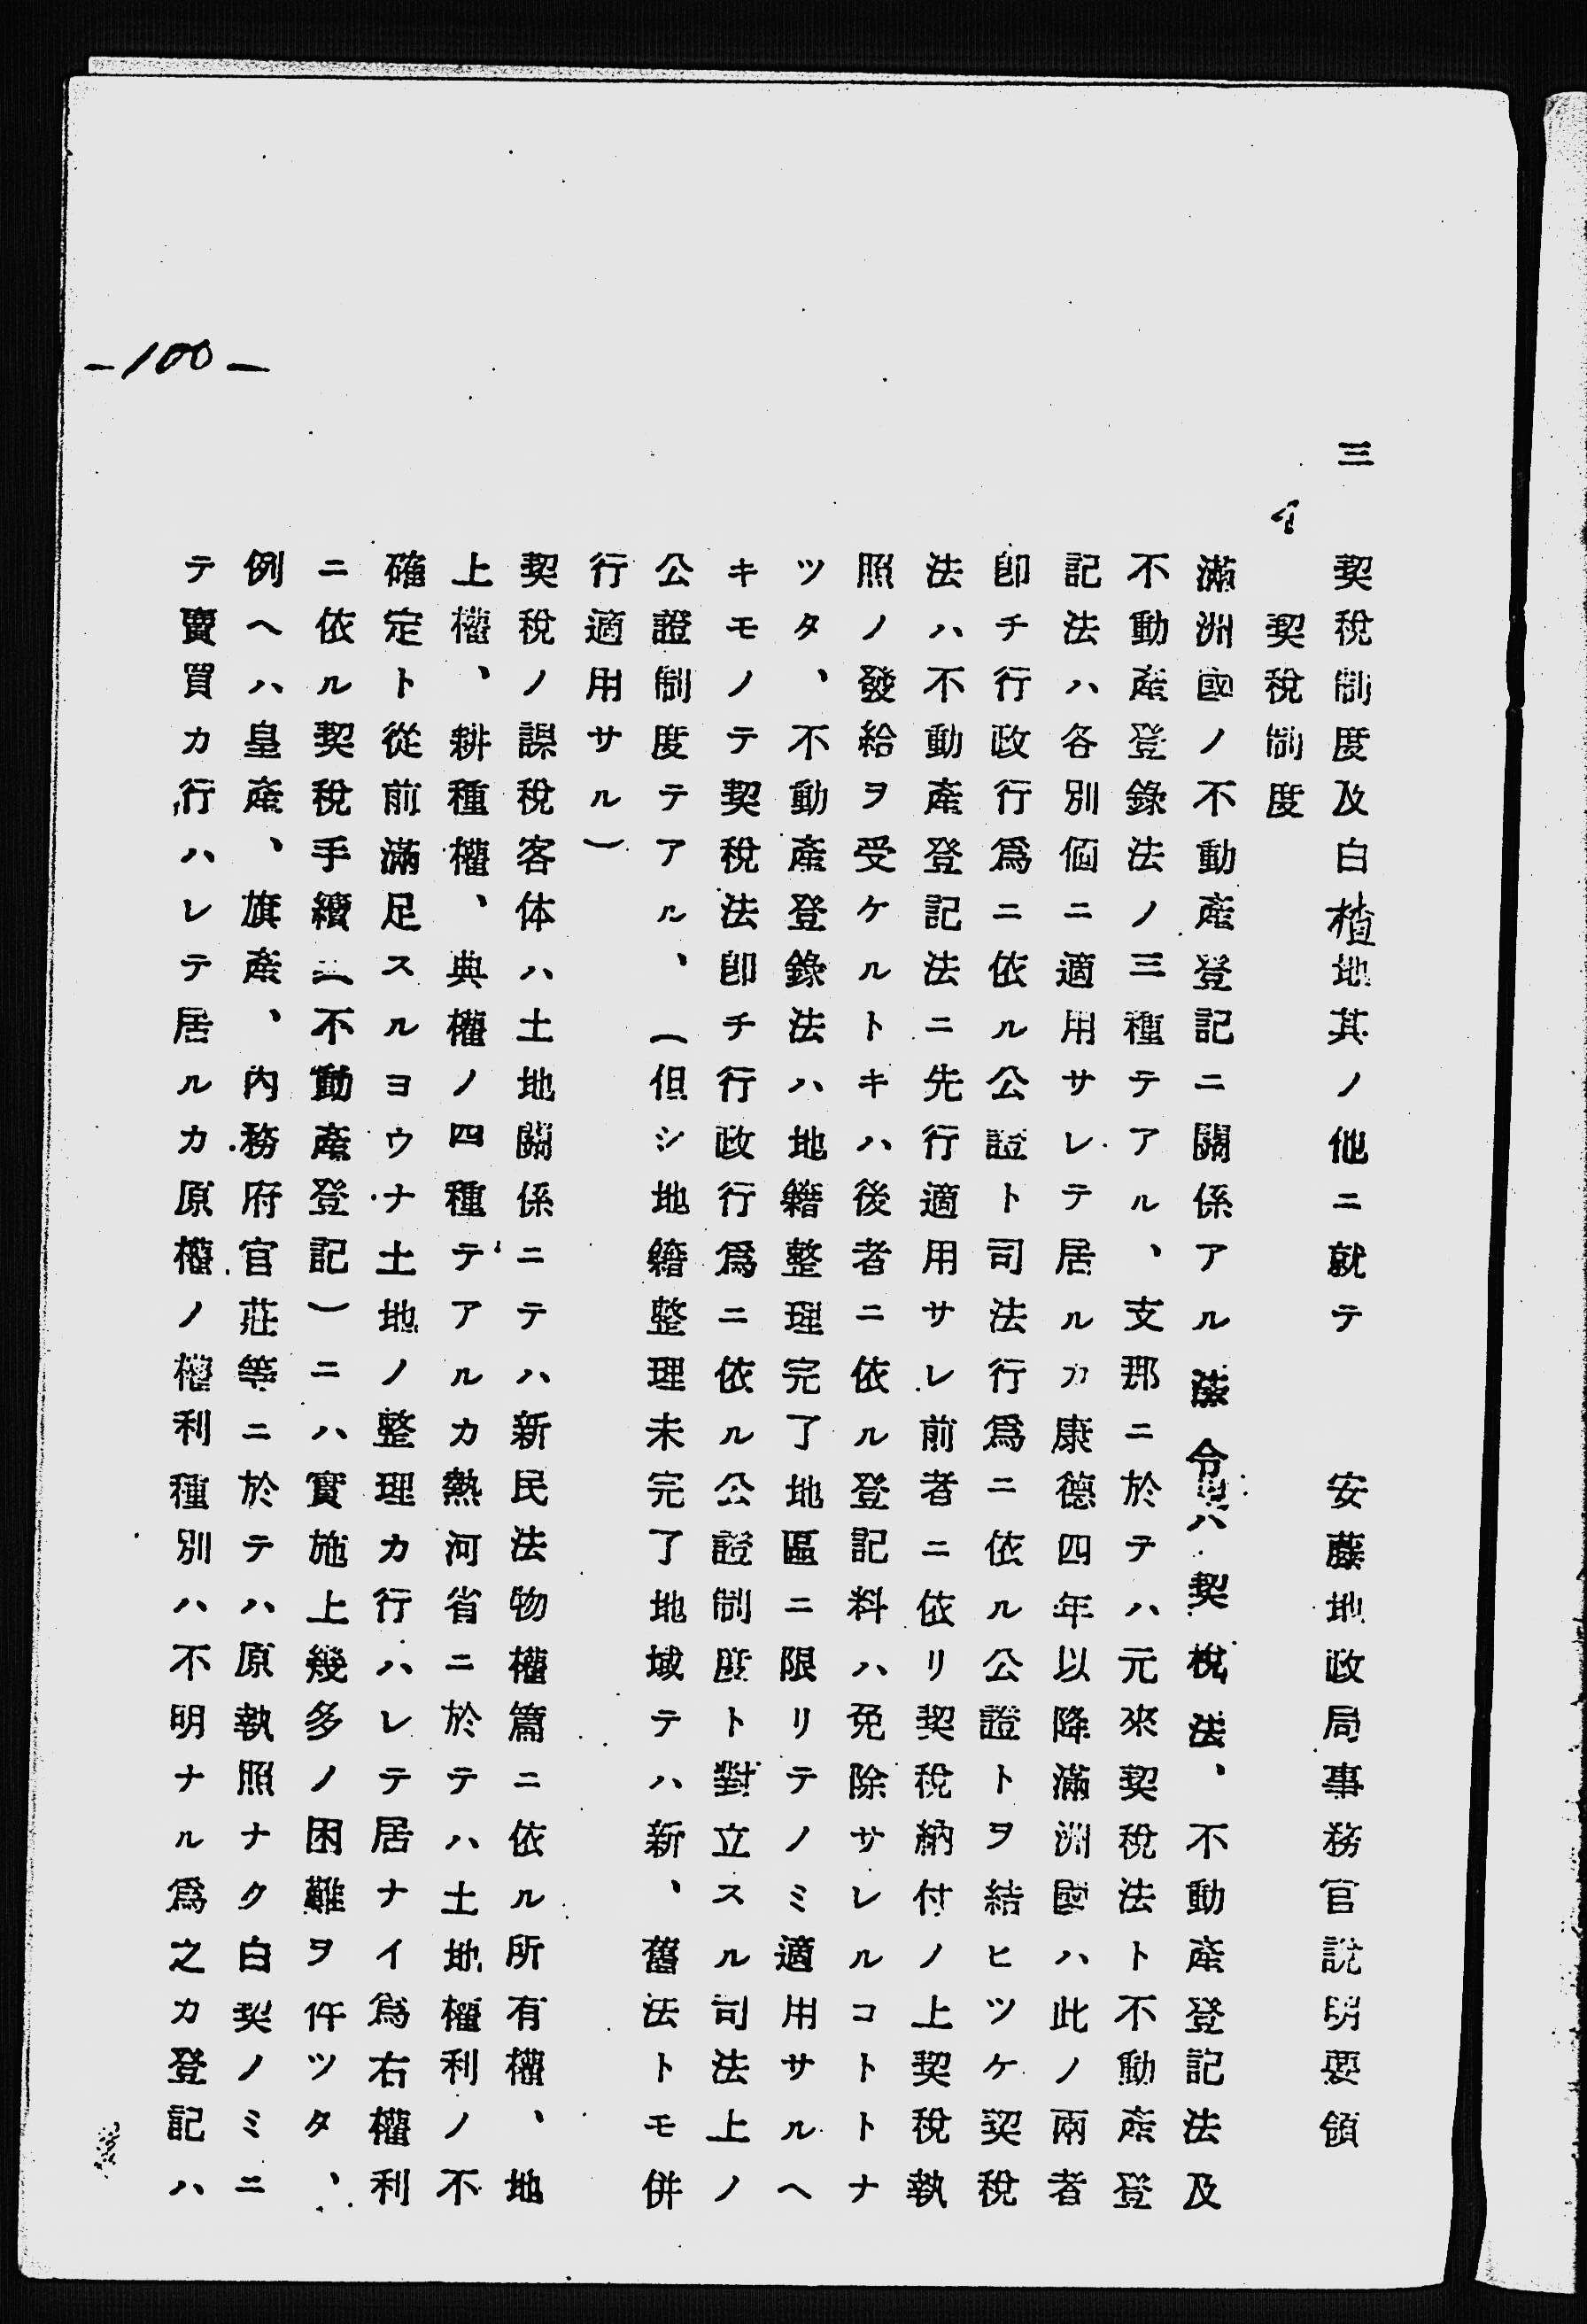 三 契稅制度及白楂地其ノ他ニ就テ 安藤地政局事務官說明要領
イ 契稅制度
滿洲國ノ不動產登記ニ關係アル法令ハ契稅法、不動產登記法及
不動產登錄法ノ三種テアル、支那ニ於テハ元來契稅法ト不動產登
記法ハ各別個ニ適用サレテ居ルカ康德四年以降滿洲國ハ此ノ兩者
卽チ行政行爲ニ依ル公證ト司法行爲ニ依ル公證トヲ結ヒツケ契稅
法ハ不動產登記法ニ先行適用サレ前者ニ依リ契稅納付ノ上契稅執
照ノ發給ヲ受ケルトキハ後者ニ依ル登記料ハ免除サレルコトトナ
ツタ、不動產登錄法ハ地籍整理完了地區ニ限リテノミ適用サルヘ
キモノテ契稅法卽チ行政行爲ニ依ル公證制度ト對立スル司法上ノ
公證制度テアル、(但シ地籍整理未完了地域テハ新、舊法トモ併
行適用サル)
契稅ノ課稅客体ハ土地關係ニテハ新民法物權篇ニ依ル所有權、地
上權、耕種權、典權ノ四種テアルカ熱河省ニ於テハ土地權利ノ不
確定ト從前滿足スルヨウナ土地ノ整理カ行ハレテ居ナイ爲右權利
ニ依ル契稅手續(不動產登記)ニハ實施上幾多ノ困難ヲ伴ツタ、
例ヘハ皇產、旗產、內務府官莊等ニ於テハ原執照ナク白契ノミニ
テ賣買カ行ハレテ居ルカ原權ノ權利種別ハ不明ナル爲之カ登記ハ
-100-